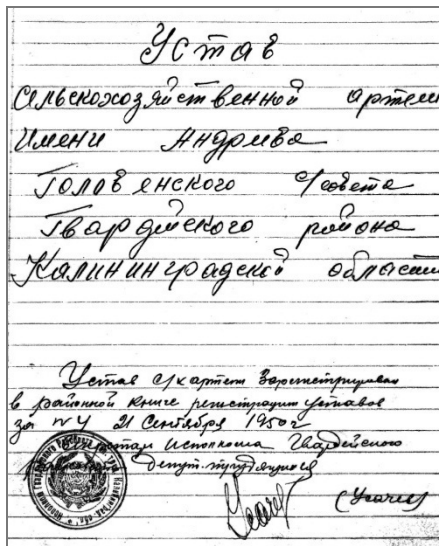 Устав
сельскохозяйственной артели
имени Андреева
Головенского с/совета
Гвардейского района
Калининградской области
Устав с/хартели Зарегистрирован
в районной книге регистрации уставов
за № 4 21 Сентября 1950 г
Исполкома Гвардейского
депут. трудящихся